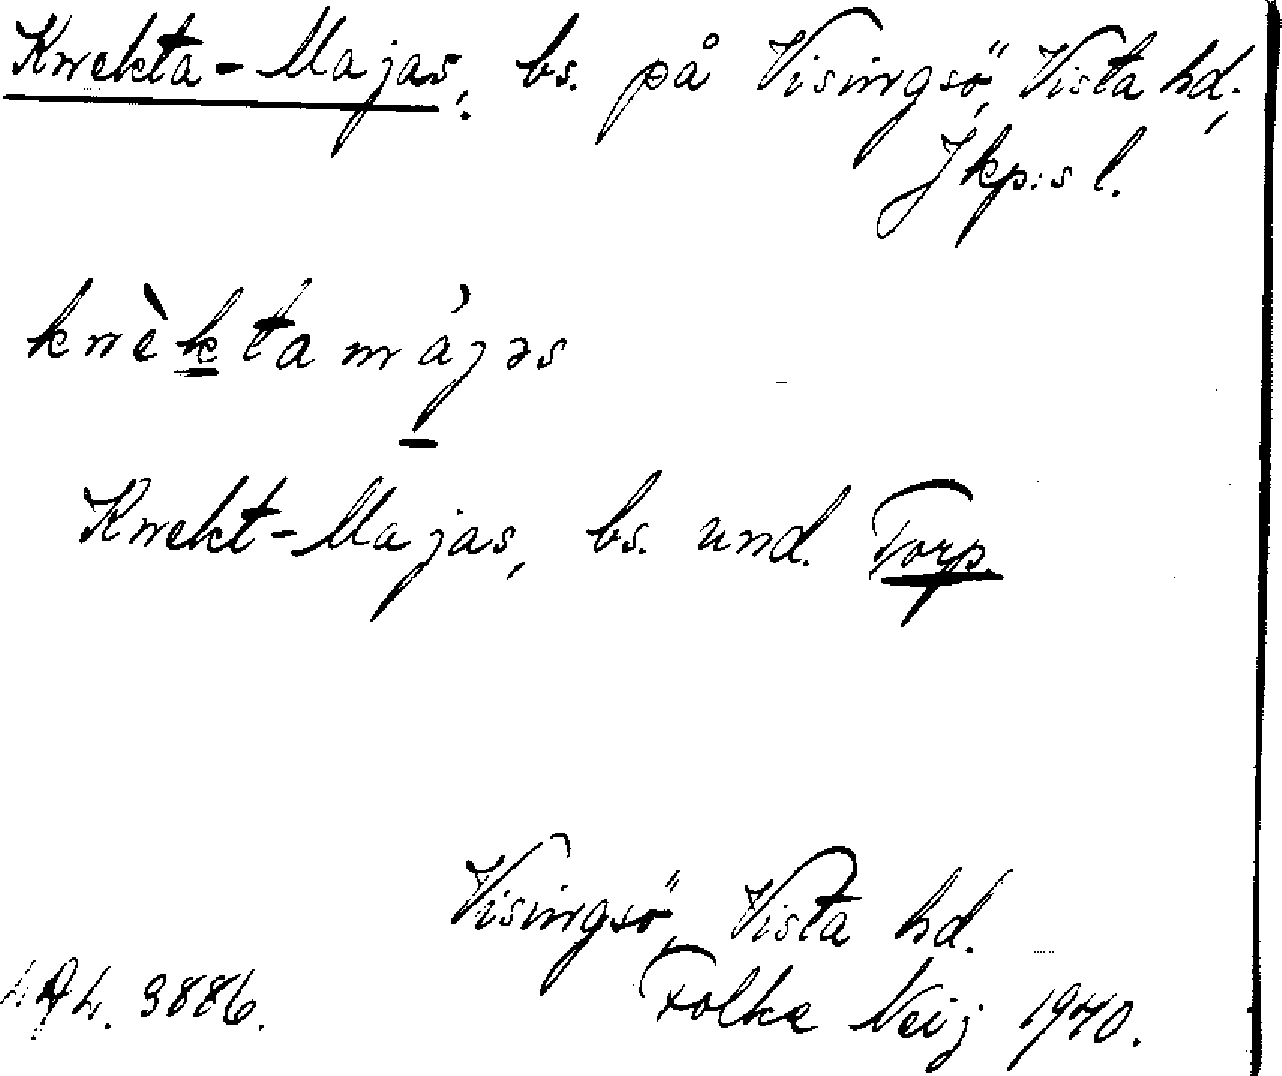 Knekta-Majas, bs. på Visingsö, Vista hd,
Jkp:s l.
knèktamájəs
Knekt-Majas, bs. und. Torp.
Visingsö, Vista hd.
Folke Neij 1940.
3886.